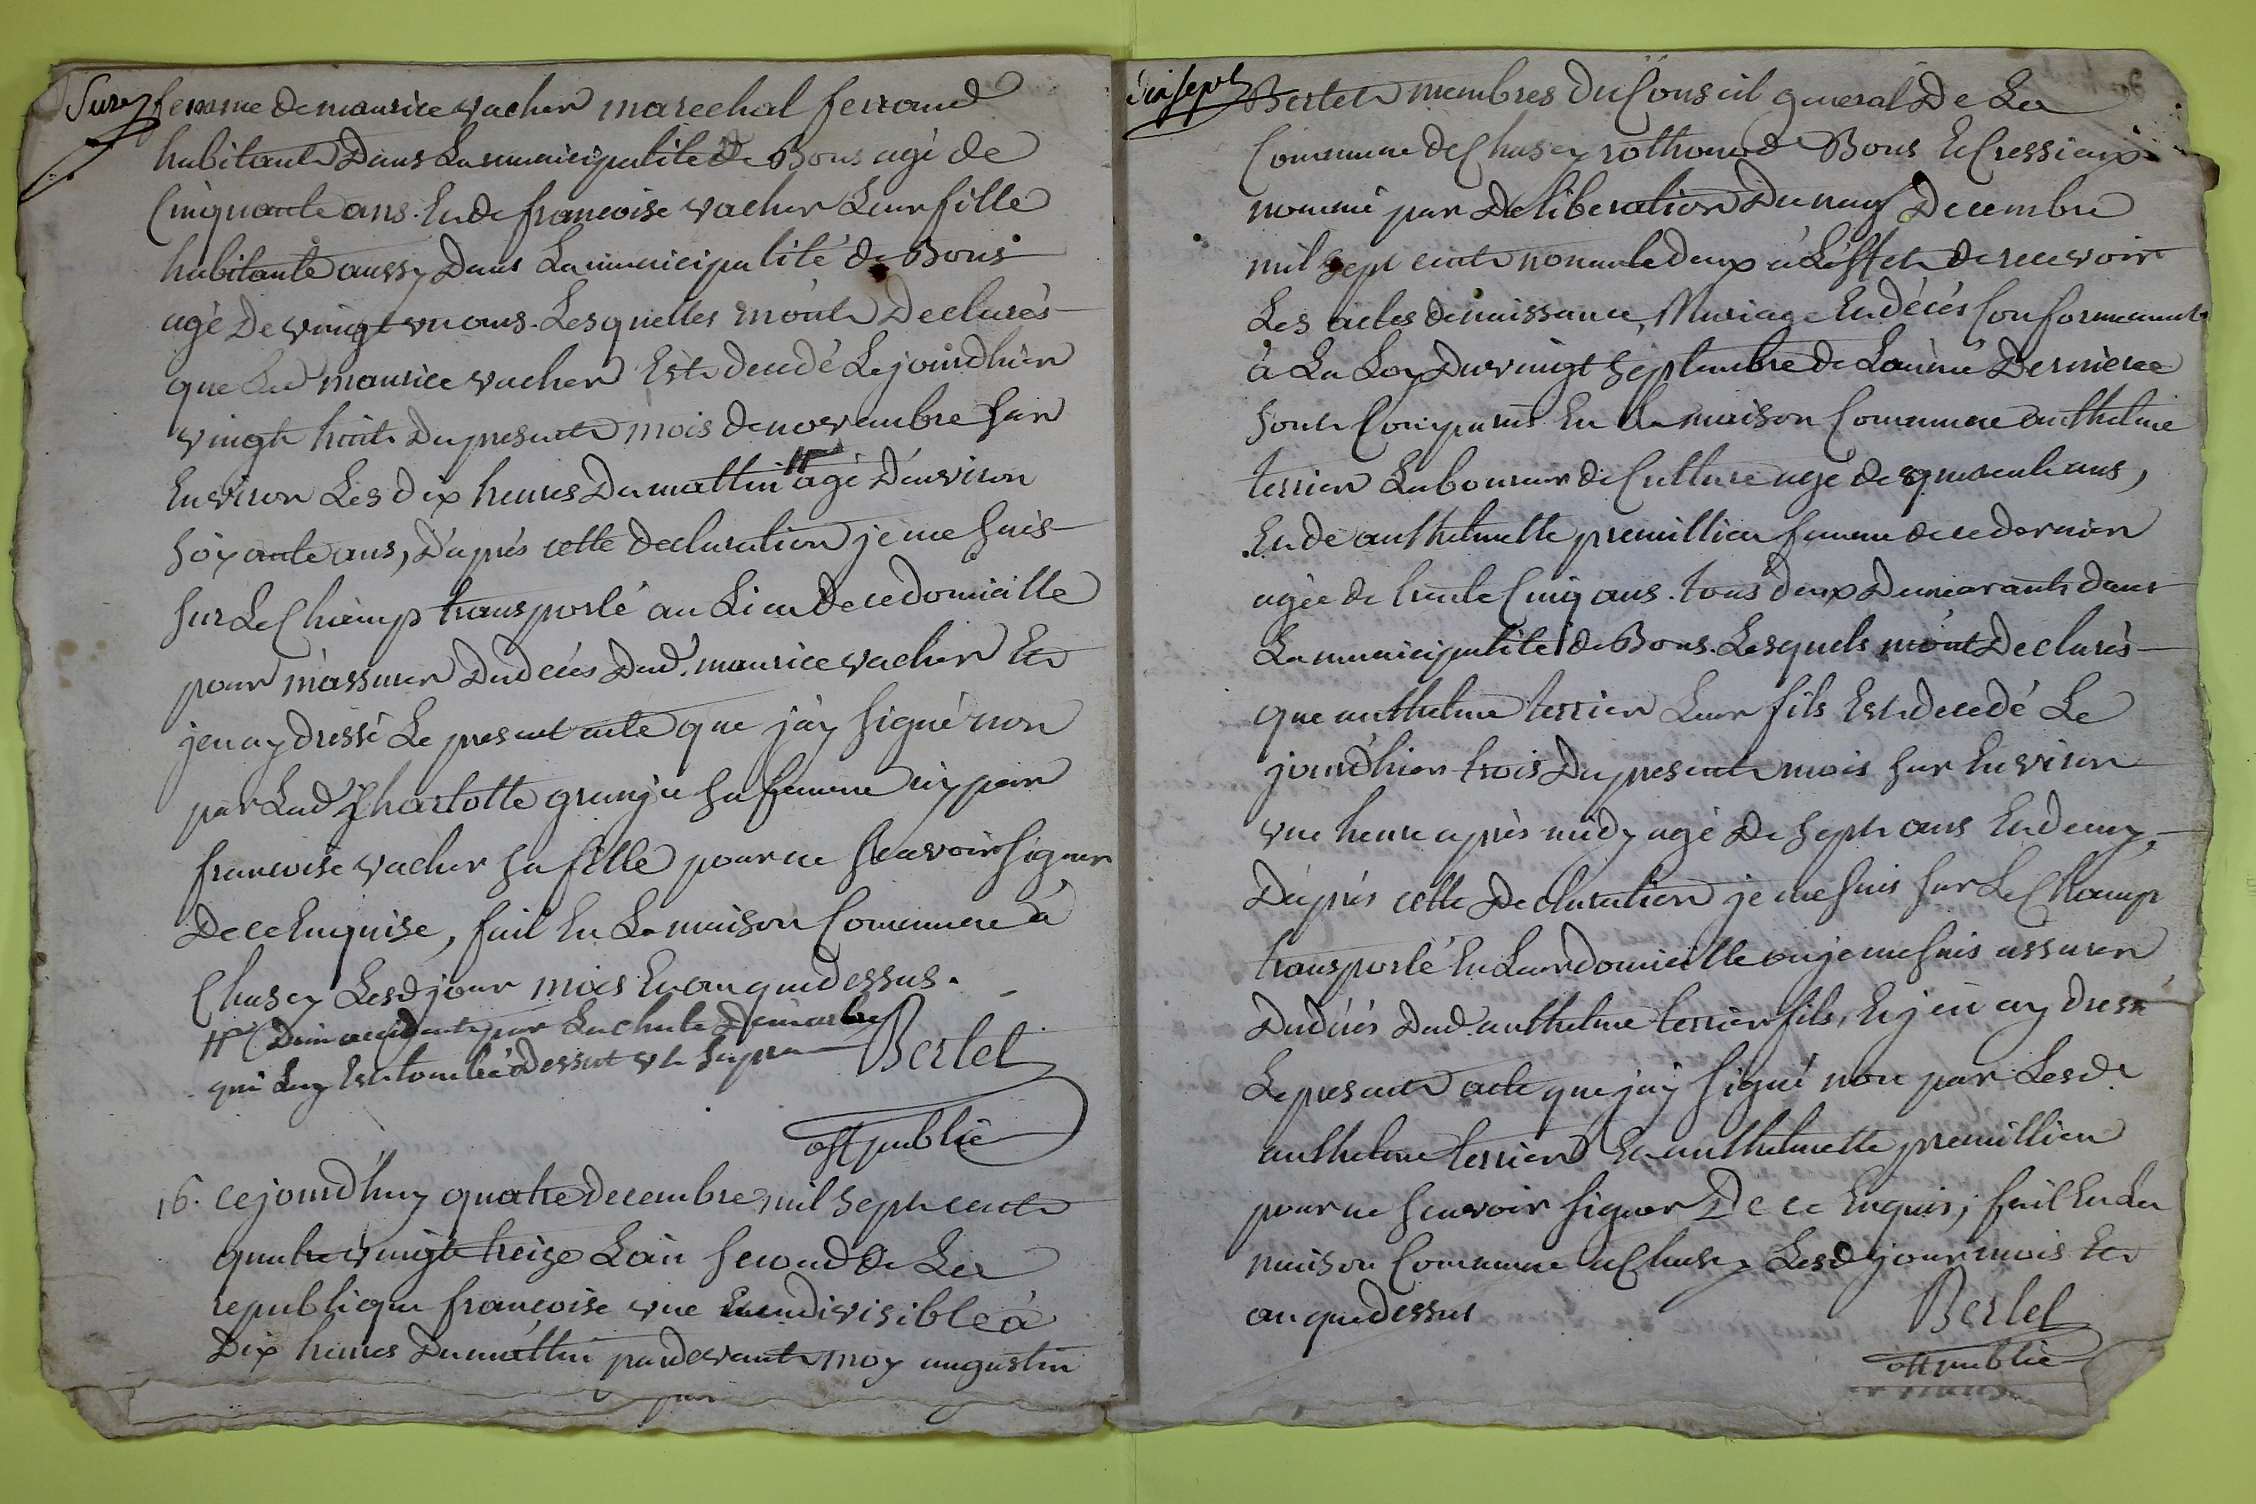 Seize femme de maurice vacher marechal ferrand
habitante Dans La municipalité de Bons agé de
Cinquante ans. Et de francoise vacher Leur fille
habitante aussy Dans La municipalité de Bons
agé De vingt un ans. Lesquelles m'ont Declarés
que Led maurice vacher Est decedé Le jourdhier
vingt huit Du present mois de novembre sur
Environ Les dix heures Du mattin # agé D'environ
soixante ans, D'après cette declaration je me suis
sur Le Champ transporté au Lieu de ce domicille
pour m'assurer Du deces Dud. maurice vacher Et
j'en ay dressé Le present acte que j'ay signé non
par Lad Charlotte granju sa femme ny par
francoise vacher sa fille pour ne scavoir signer
De ce Enquise, fait En La maison Commune à
Chasey Lesd jour mois Et an que dessus.
# D'un accident par La chute D'un arbre
qui Luy Est tombé Dessut Berlet
off public
16. cejourd'huy quatre decembre mil sept cent
quatre vingt treize L'an second de La
republique francoise une Et indivisible à
Dix heures Du mattin pardevant moy augustin
dix sept Berlet membres Du Conseil general De La
Commune de Chasey rothonod Bons Et Cressieux
nommé par Deliberation Du neuf Decembre
mil sept cent nonante deux à L'effet de recevoir
Les actes de naissance, Mariage Et décés Conformement
à La Loy Du vingt septembre de L'année Derniere
sont Comparus En La maison Commune anthelme
terrier Laboureur de Culture agé de quarente ans,
Et de anthelmette premillieu femme de ce dernier
agée de trente Cinq ans. tous deux Demeurants dans
La municipalité de Bons. Lesquels m'ont Declarés
que anthelme terrier Leur fils Est decedé Le
jourd'hier trois Du present mois sur Environ
une heure après midy agé De sept ans Et demy,
D'après cette Declaration je me suis sur Le Champ
transporté En Leur domicille ou je me suis assurer
Du décés Dud. anthelme terrier fils, Et j'en ay dressé
Le present acte que j'ay signé non par Lesd
anthelme terrier Et anthelmette premillieu
pour ne scavoir signer De ce Enquis, fait En La
maison Commune a Chasey Lesd jour mois Et
an que dessus Berlet
off public